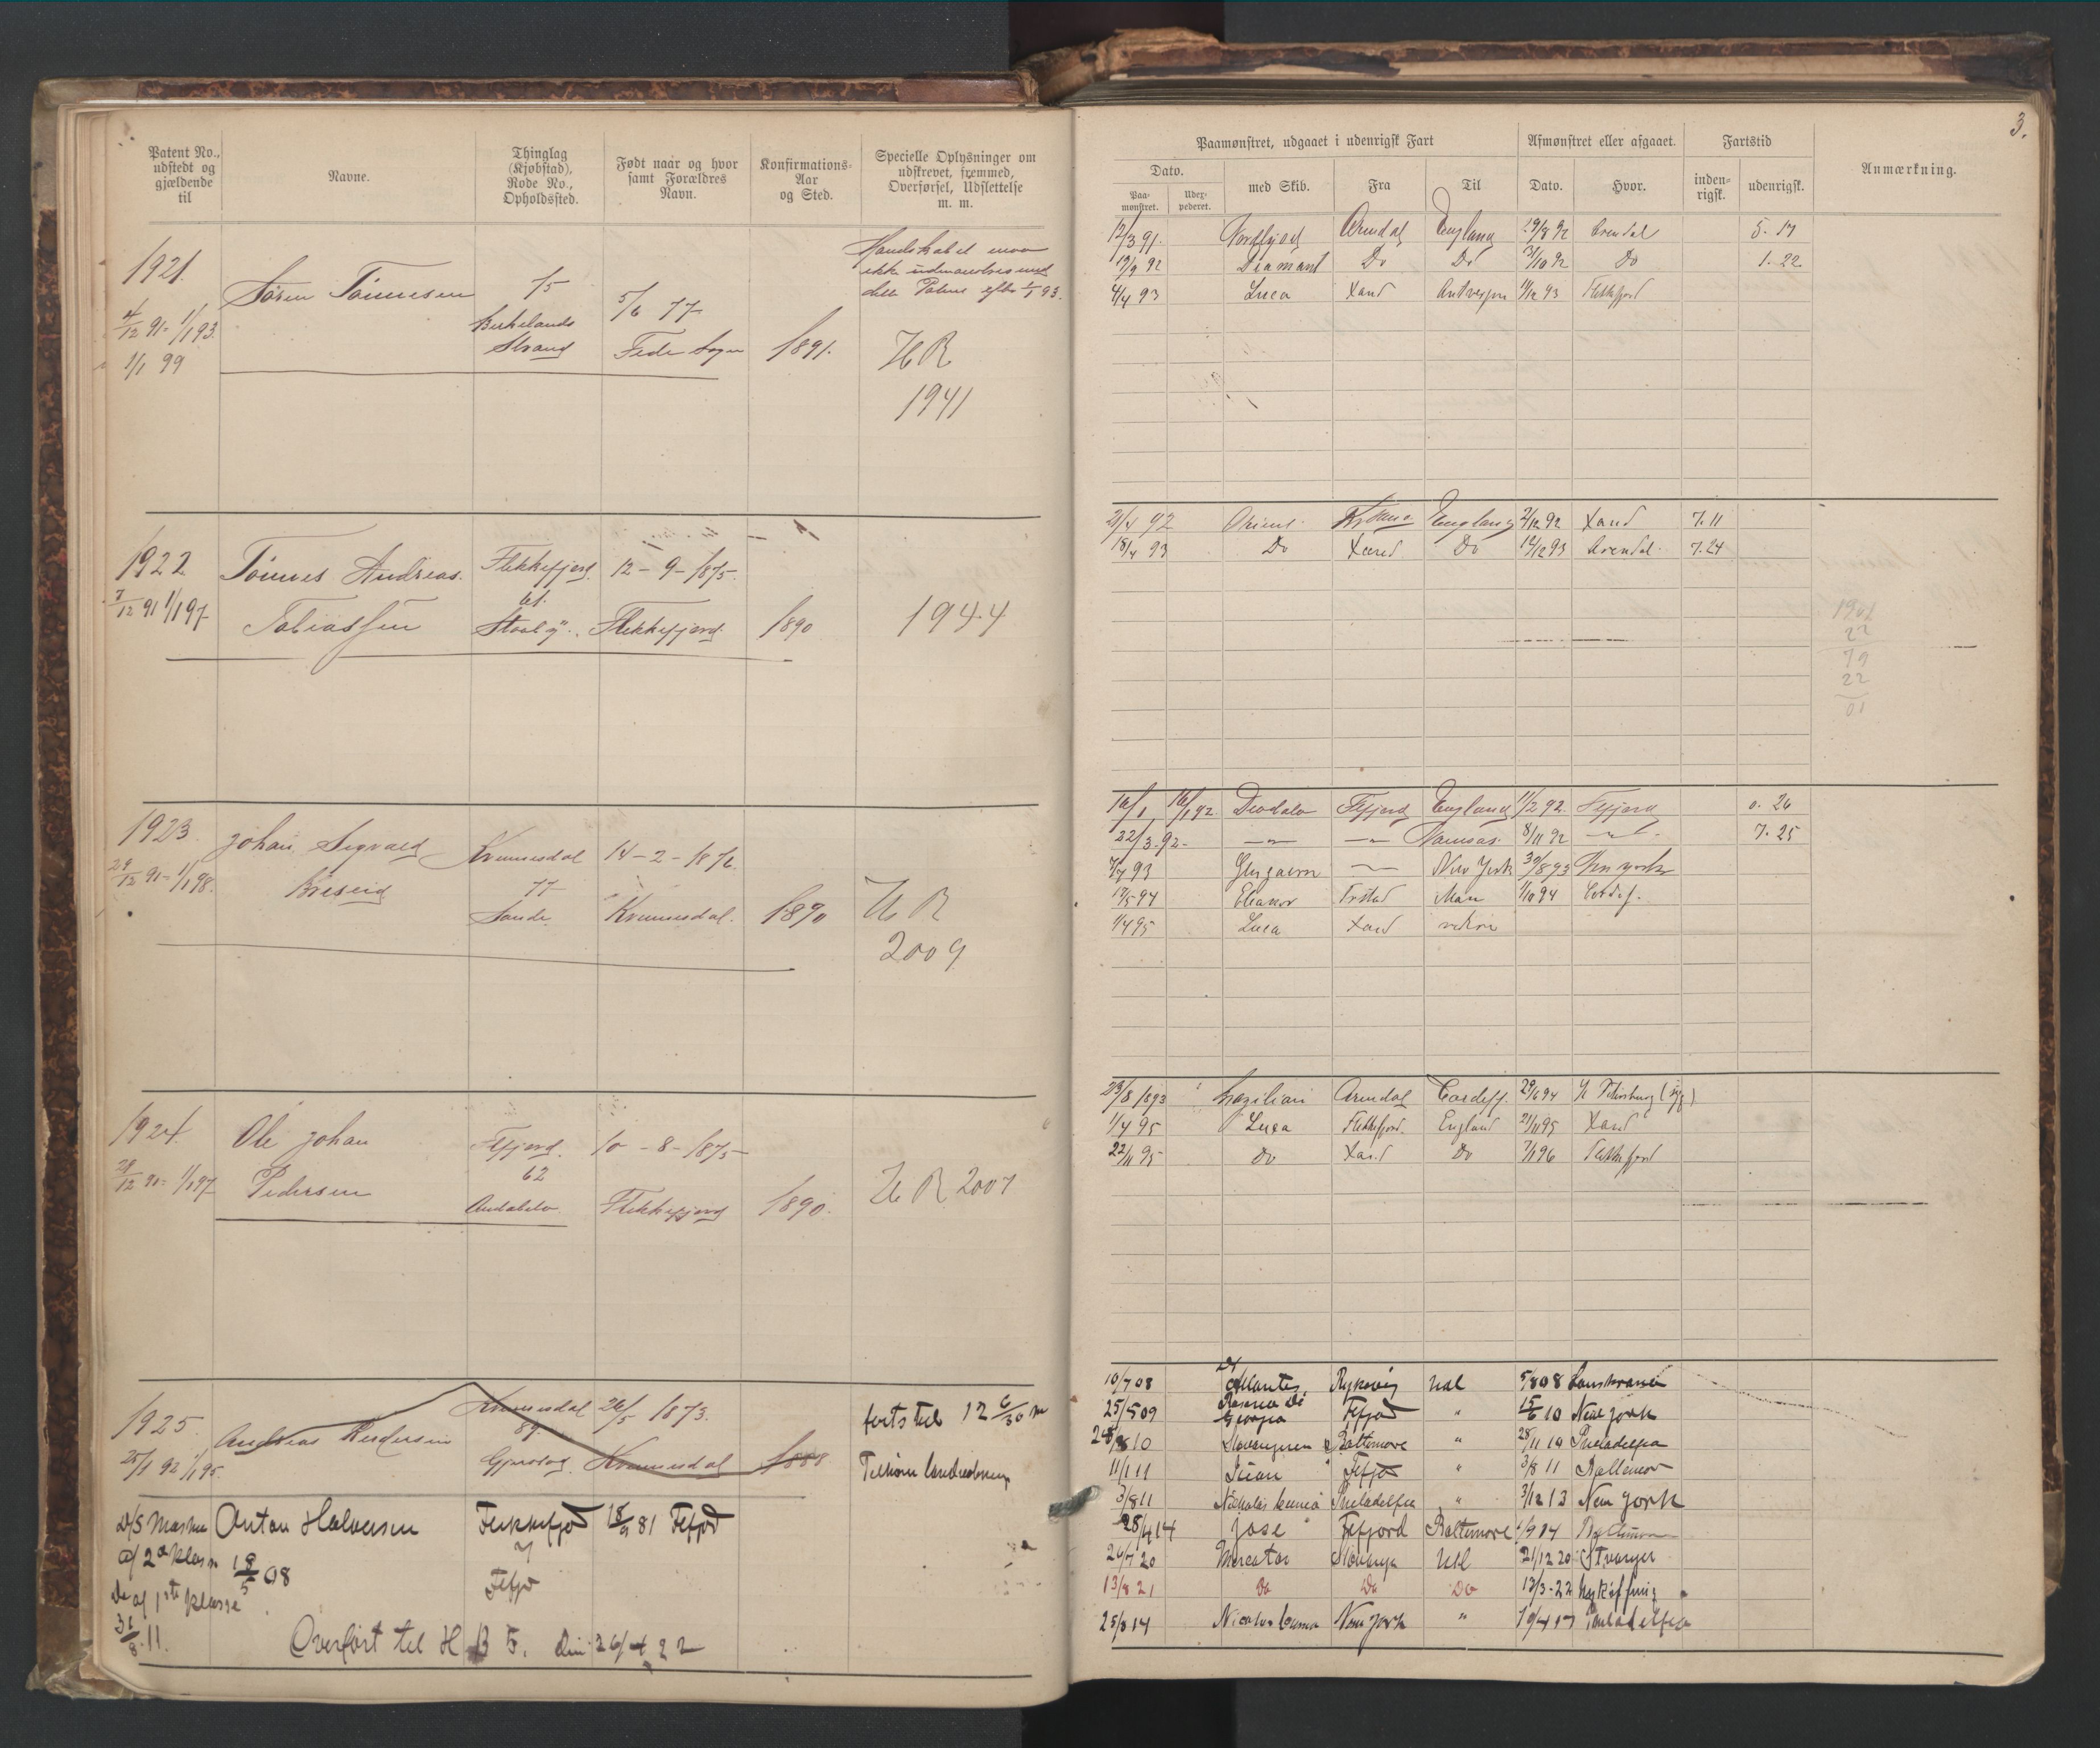 3.
Patent No., udstedt og gjældende til
Navne.
Thinglag (Kjøbstad), Rode No., Opholdssted.
Født naar og hvor samt Forældres Navn.
Konfirmations-Aar og Sted.
Specielle Oplysninger om udskrevet, fremmed, Overførsel, Udslettelse m. m.
1921
4/12 91 - 1/1 93.
1/1 99
Søren Tønnesen
75
Birkelands
Strand
5/6 77
Fede Sogn
1891.
ikke
dette Patent efter 93.
HR
1941
1922
7/12 91 1/1 97
Tønnes Andreas
Tobiassen
Flekkefjord
61.
12-9-1875.
Flekkefjord
1890
1944
1923.
29/12 91 - 1/1 98.
Johan Sigvald
Breseid
Kvinesdal
77
Sande
14-2-1876
Kvinesdal.
1890
HR
2009
1924
29/12 91 - 1/1 97
Ole Johan
Pedersen
Ffjord.
62
Andabelø
10-8-1875
Flekkefjord
1890.
HR 2007
1925.
25/1 92 1/1 95
Andreas
Kvinesdal
89
26/5 1873.
Kvinesdal
1888
D/S Maskn
af 2den klasse 18/5 08
Do af 1ste klasse
31/8 11.
Anton Halvorsen
Flekkefjord
7
Fefjd
18/9 81 Fefjd
Overført til H B 5. den 26/4 22
Paamønstret, udgaaet i udenrigsk Fart
Afmønstret eller afgaaet.
Fartstid
Anmærkning.
Dato.
Paa-mønstret.
Uder-pederet.
med Skib.
Fra
Til
Dato.
Hvor.
inden-rigsk.
udenrigsk.
12/3 91. Nordfjord Arendal England 29/8 92 Arendal 5. 17
19/9 92 Diamant Do Do 31/10 92 Do 1. 22
4/4 93 Luca Xand Antverpen 11/12 93 Flekkefjord
21/4 92 Orient England 2/12 92 Xand 7. 11
18/4 93 Do Xsand Do 12/12 93 Arendal 7. 24
1901
22
79
22
01
16/1 16/1 92. Ffjord England 11/2 92. Ffjord 0. 26
22/3 92 - Namsos. 8/11 92 7. 25
7/7 93 New York 30/8 93 New York
17/5 94 Eleanor Man 1/10 94
1/4 95 Luca Xand
23/8 1893 Brazilian Arendal Cardiff 29/6 94
1/4 95 Luca Flekkefjord England 21/11 95 Xand
22/11 95 Do Xand Do 7/1 96 Flekkefjord
10/7 08 Atlantes Udl 5/8 08 Landskrona
25/5 09 Georgia Fefjd " 15/6 10 New York
10 Baltimore " 28/11 10 Philadelfia
11/1 11 Fefjd " 3/8 11 Baltimore
3/8 11 Nicholas Cuneo Philadelfia " 3/12 13 New York
28/4 14 Jose Fefjord Baltimore Baltimore
26/7 20 Mercator Stavanger Udl 21/12 20 Stvanger
13/8 21 Do Do Do 13/3-22 Nykøffing
25/8 14 Nicolas Cuneo New York " 19/4 17 Philadelfia